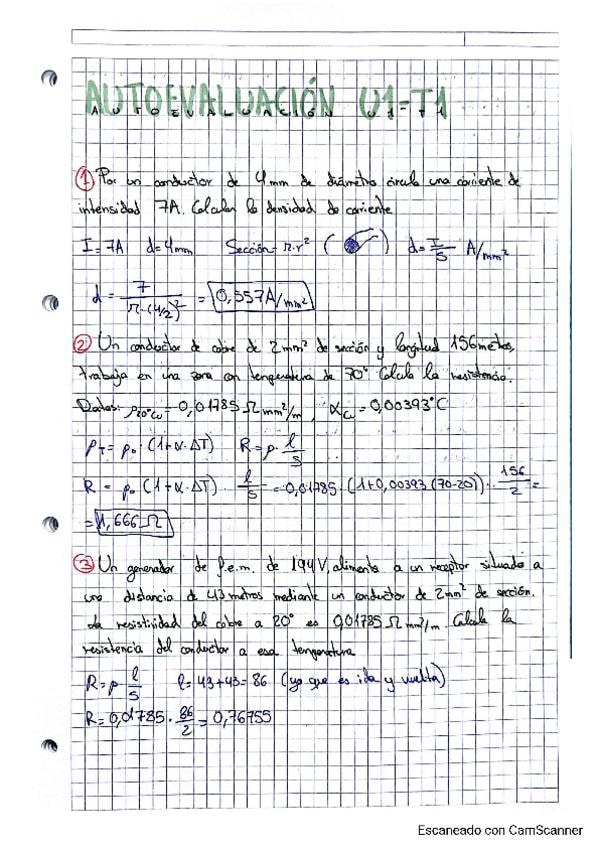 AUTOEVALUACIÓN U1-T1
① Por un conductor de 4mm de diámetro circula una corriente de
intensidad 7A. Calcular la densidad de corriente.
I=7A d=4mm Sección=π·r² ( ) d=I/S A/mm²
d = 7/(π·(4/2)²) = 0,557A/mm²
② Un conductor de cobre de 2mm² de sección y longitud 156metros,
trabaja en una zona con temperatura de 70° Calcula la resistencia.
Datos: ρ20°Cu=0,01785 Ω mm²/m, αCu=0,00393°C
ρT=ρ0·(1+α·ΔT) R=ρ·l/S
R = ρ0·(1+α·ΔT)·l/S=0,01785·(1+0,00393(70-20))·156/2=
=1,666Ω
③ Un generador de f.e.m. de 194V, alimenta a un receptor situado a
una distancia de 43 metros mediante un conductor de 2mm² de sección.
La resistividad del cobre a 20° es 0,01785 Ω mm²/m. Calcula la
resistencia del conductor a esa temperatura
R=ρ·l/S l=43+43=86 (ya que es ida y vuelta)
R=0,01785·86/2=0,76755
Escaneado con CamScanner